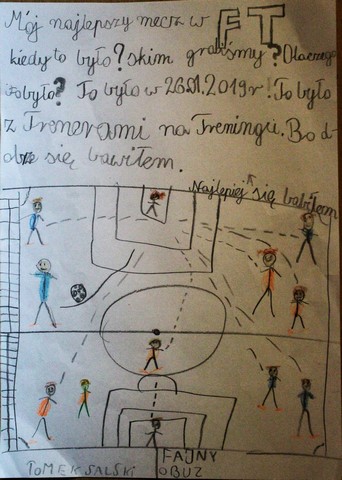 Mój najlepszy mecz w FT
kiedy to było? z kim graliśmy? Dlaczego
to było? To było w 26.01.2019r! To było
z Trenerami na Treningu. Bo d-
obrze się bawiłem.
Najlepiej się babiłem
TOMEK SALSKI
FAJNY
OBUZ